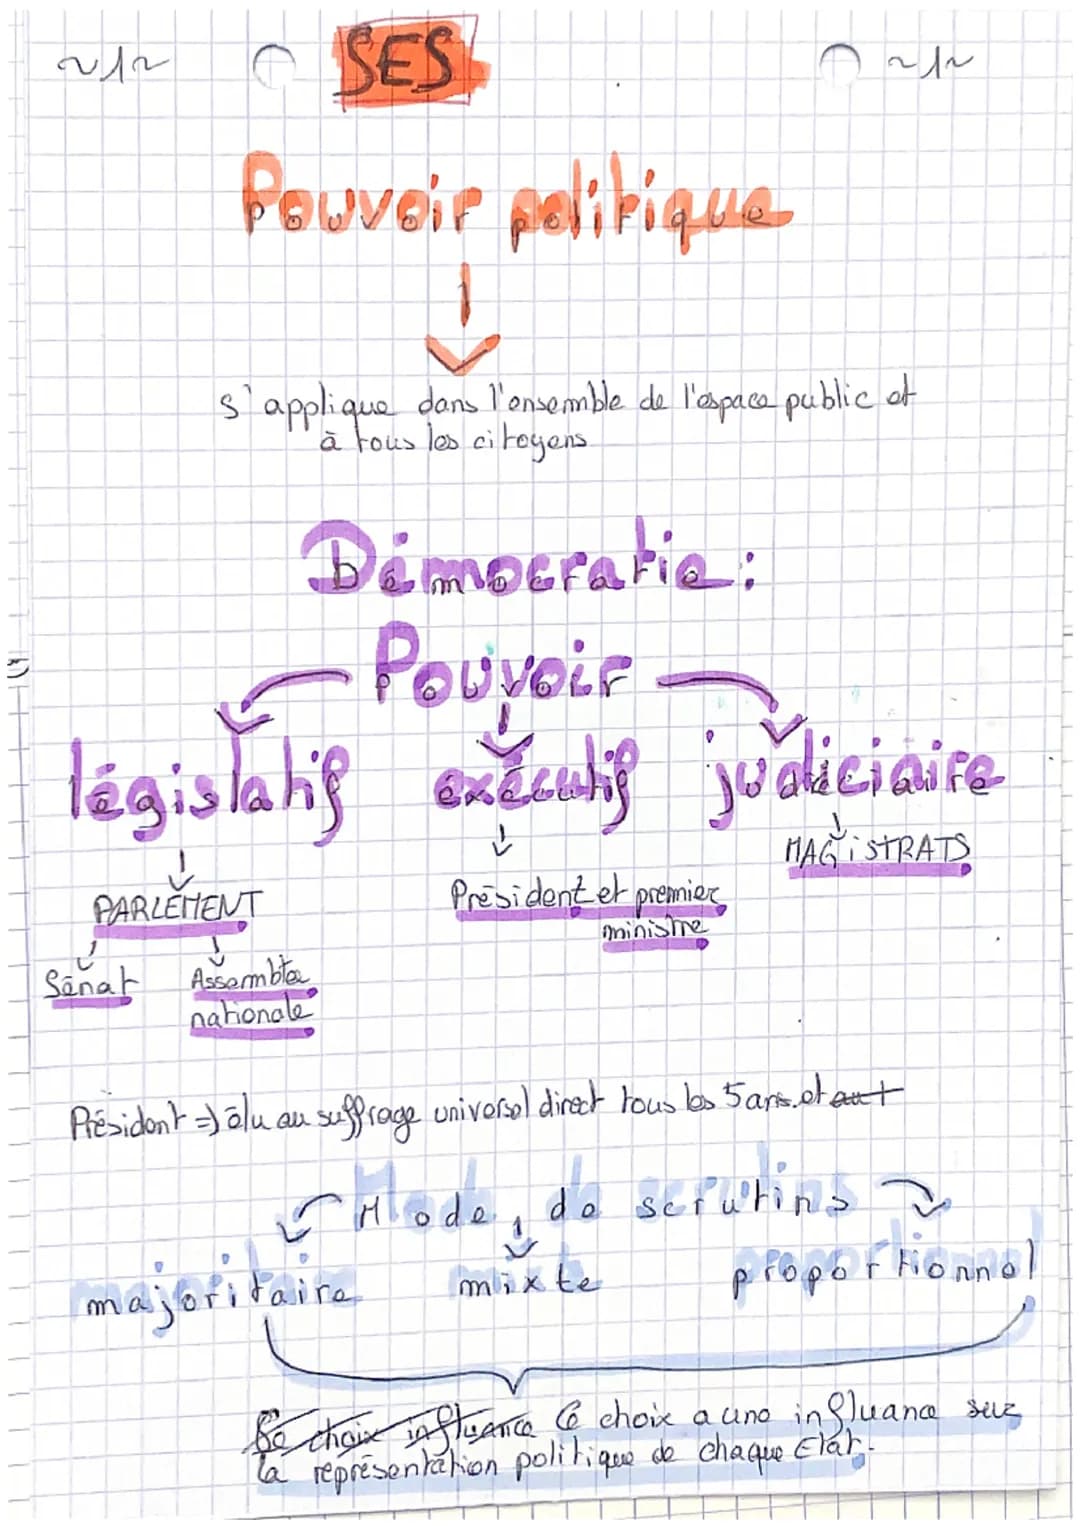 SES
Pouvoir politique
s'applique dans l'ensemble de l'espace public et
à tous les citoyens
Démocratie :
Pouvoir
législatif exécutif judiciaire
MAGiSTRATS
PARLEMENT
Président et premier
ministre
Sénat Assemblée
nationale
Président => élu au suffrage universel direct tous les 5 ans et
Mode de scrutins
majoritaire mixte proportionnel
Ce choix influance Ce choix a une influance sur
la représentation politique de chaque Etat.